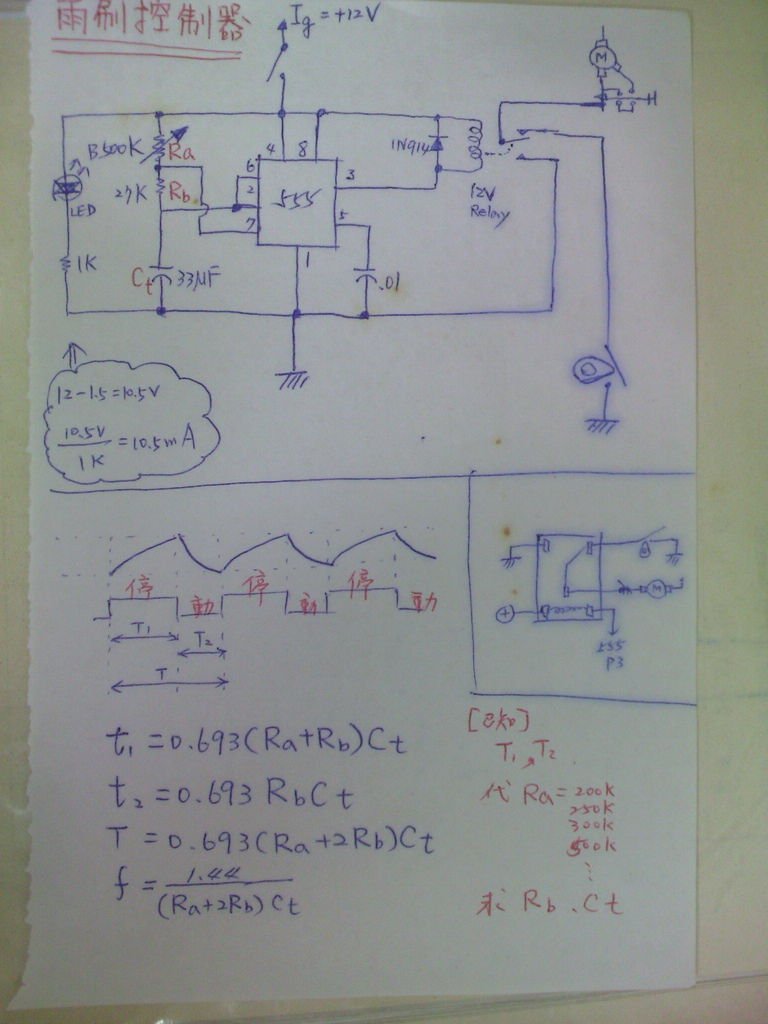 雨刷控制器
Ig = +12V
M
B500K
Ra
4
8
1N914
6
2
3
27K
Rb
555
12V
Relay
LED
7
5
1K
Ct
33μF
1
.01
12-1.5=10.5V
10.5V
1K
=10.5mA
停
動
停
動
停
動
T1
T2
T
M
+
555
P3
t1 = 0.693(Ra+Rb)Ct
t2 = 0.693 RbCt
T = 0.693(Ra+2Rb)Ct
f = 1.44
(Ra+2Rb)Ct
[已知]
T1, T2
代 Ra = 200k
250k
300k
500k
⋮
求 Rb . Ct